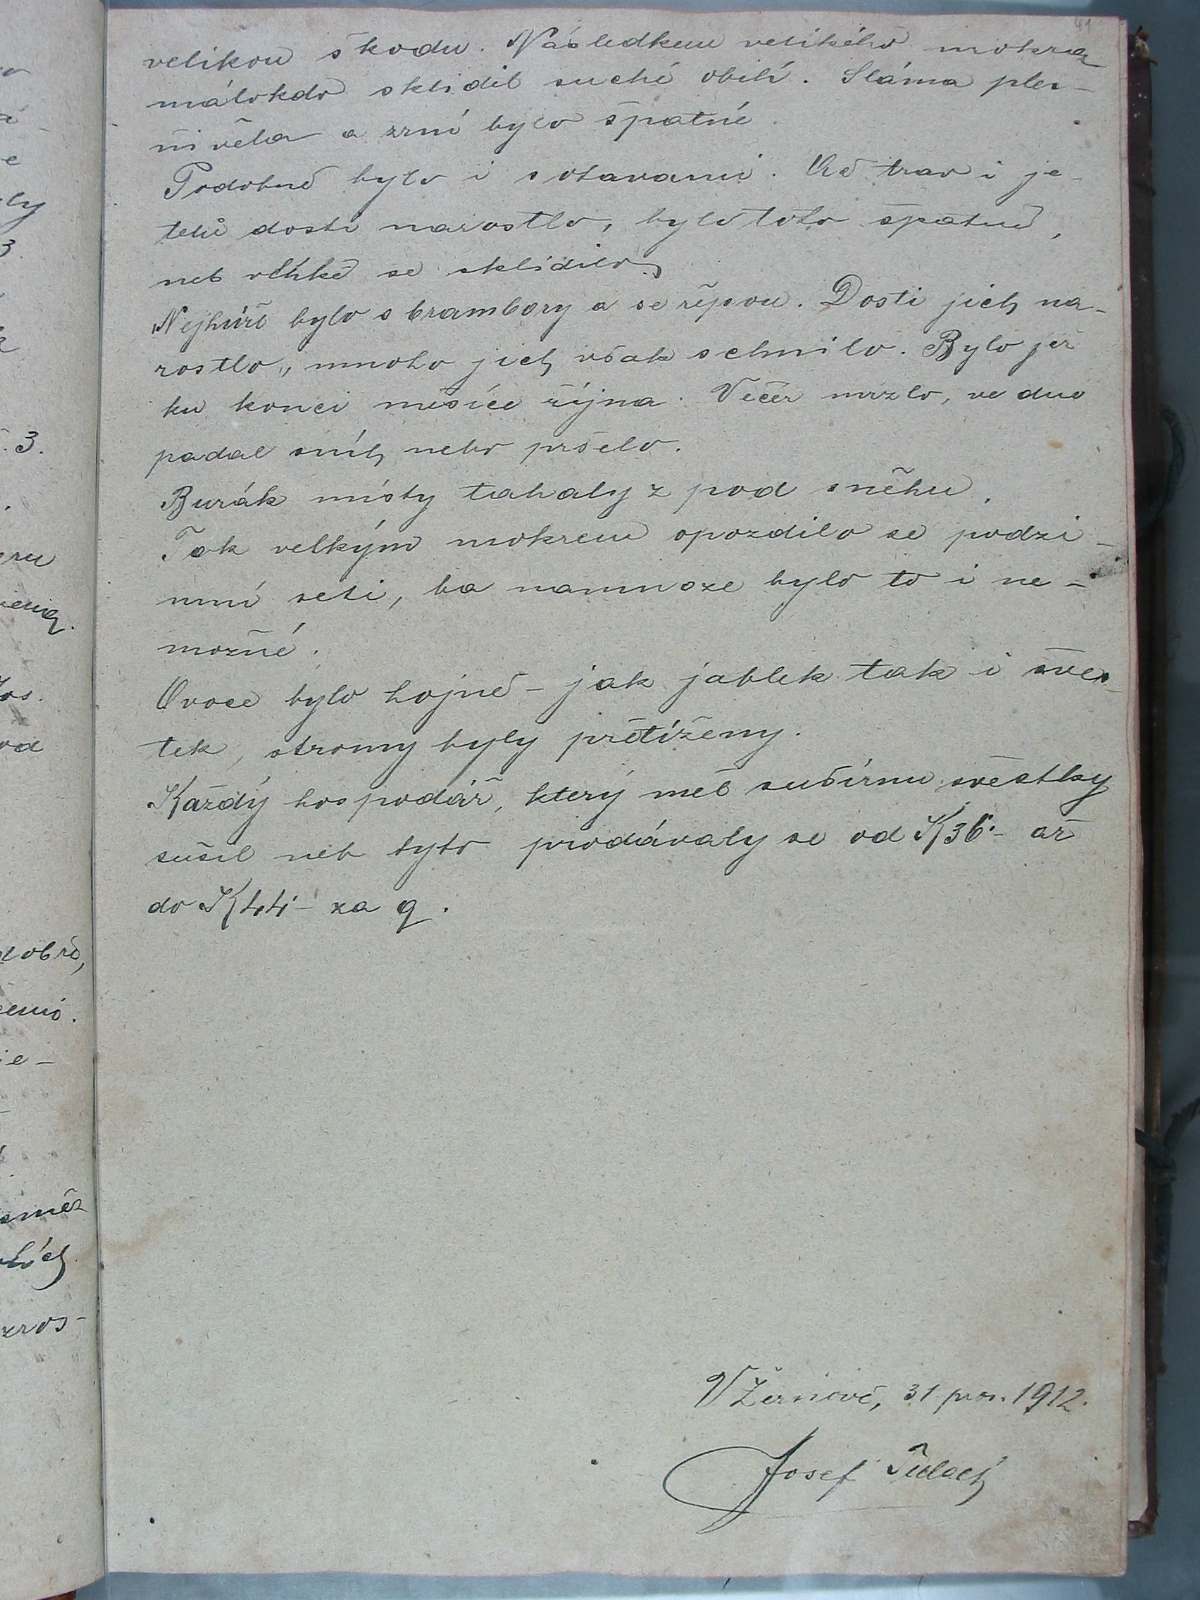 velikou škodu. Následkem velikého mokra
málokdo sklidil suché obilí. Sláma ples-
nivěla a zrní bylo špatné.
Podobně bylo i s otavami. Ač trav i je-
telů dosti narostlo, bylo toto špatné,
neb vlhké se sklidilo.
Nejhůře bylo s brambory a se řepou. Dosti jich na-
rostlo, mnoho jich však schnilo. Bylo již
ku konci měsíce října. Večer mrzlo, ve dne
padal sníh nebo pršelo.
Burák místy tahaly z pod sněhu.
Tak velkým mokrem opozdilo se podzi-
mní setí, ba namnoze bylo to i ne-
možné.
Ovoce bylo hojně - jak jablek tak i šves-
tek, stromy byly přetíženy.
Každý hospodář, který měl sušírnu švestky
sušil neb tyto prodávaly se od K 36·- až
do K 44·- za q.
V Žernově, 31 pros. 1912.
Josef
41
ly
3.
3.
dobře,
zros-